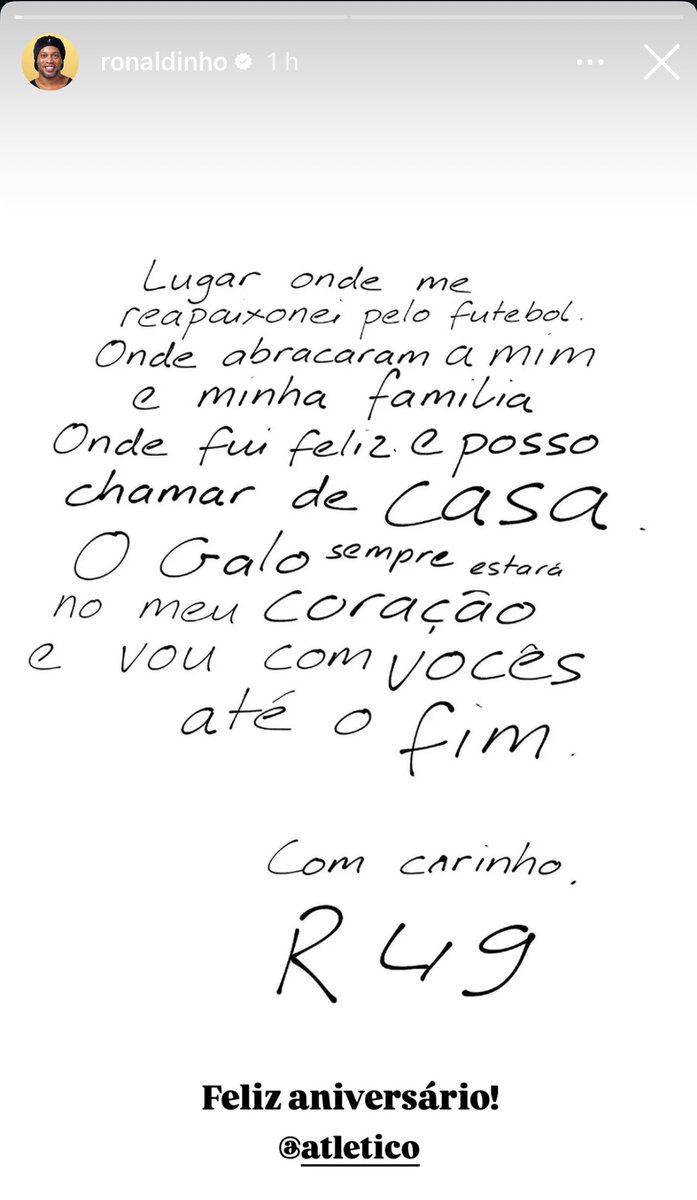 ronaldinho 1 h
Lugar onde me
reapaixonei pelo futebol.
Onde abracaram a mim
e minha familia
Onde fui feliz. e posso
chamar de casa.
O Galo sempre estará
no meu coração
e vou com vocês
até o fim.
Com carinho.
R49
Feliz aniversário!
@atletico